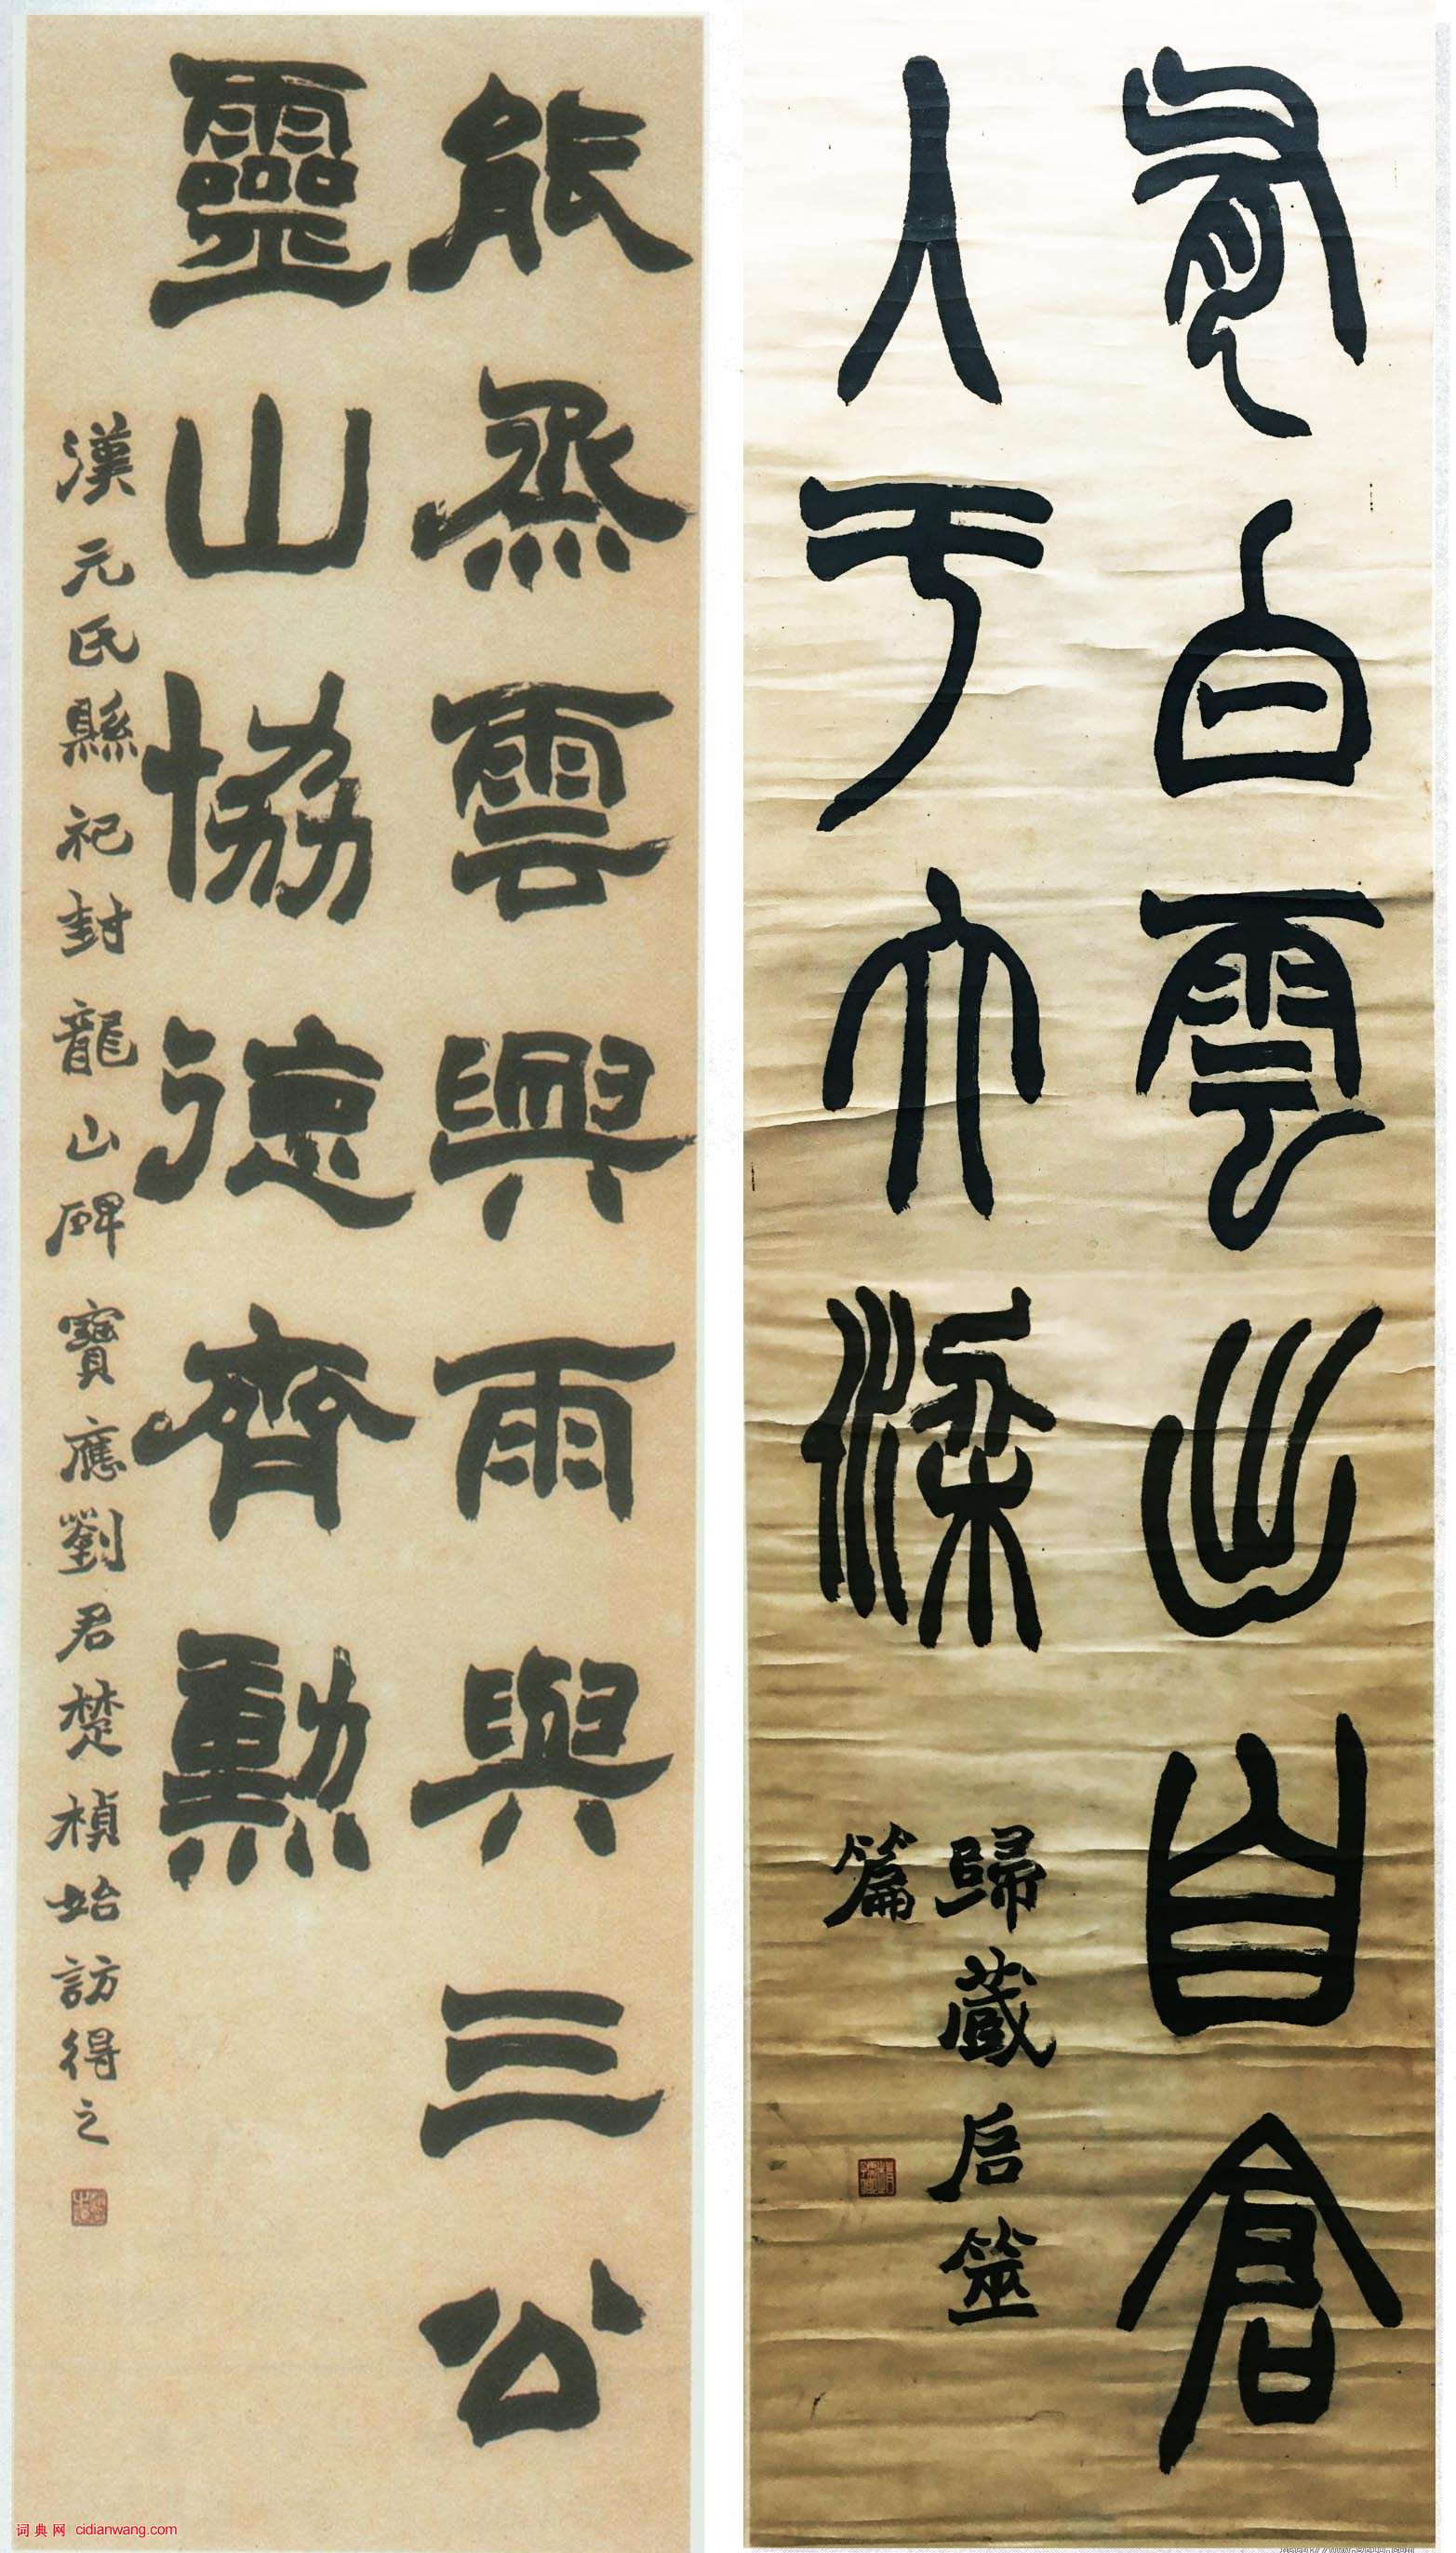 有白雲出自倉
入于大梁
歸藏启筮
篇
能烝雲興雨與三公
靈山協德齊勳
漢元氏縣祀封龍山碑寶應劉君楚楨始訪得之
词典网 cidianwang.com